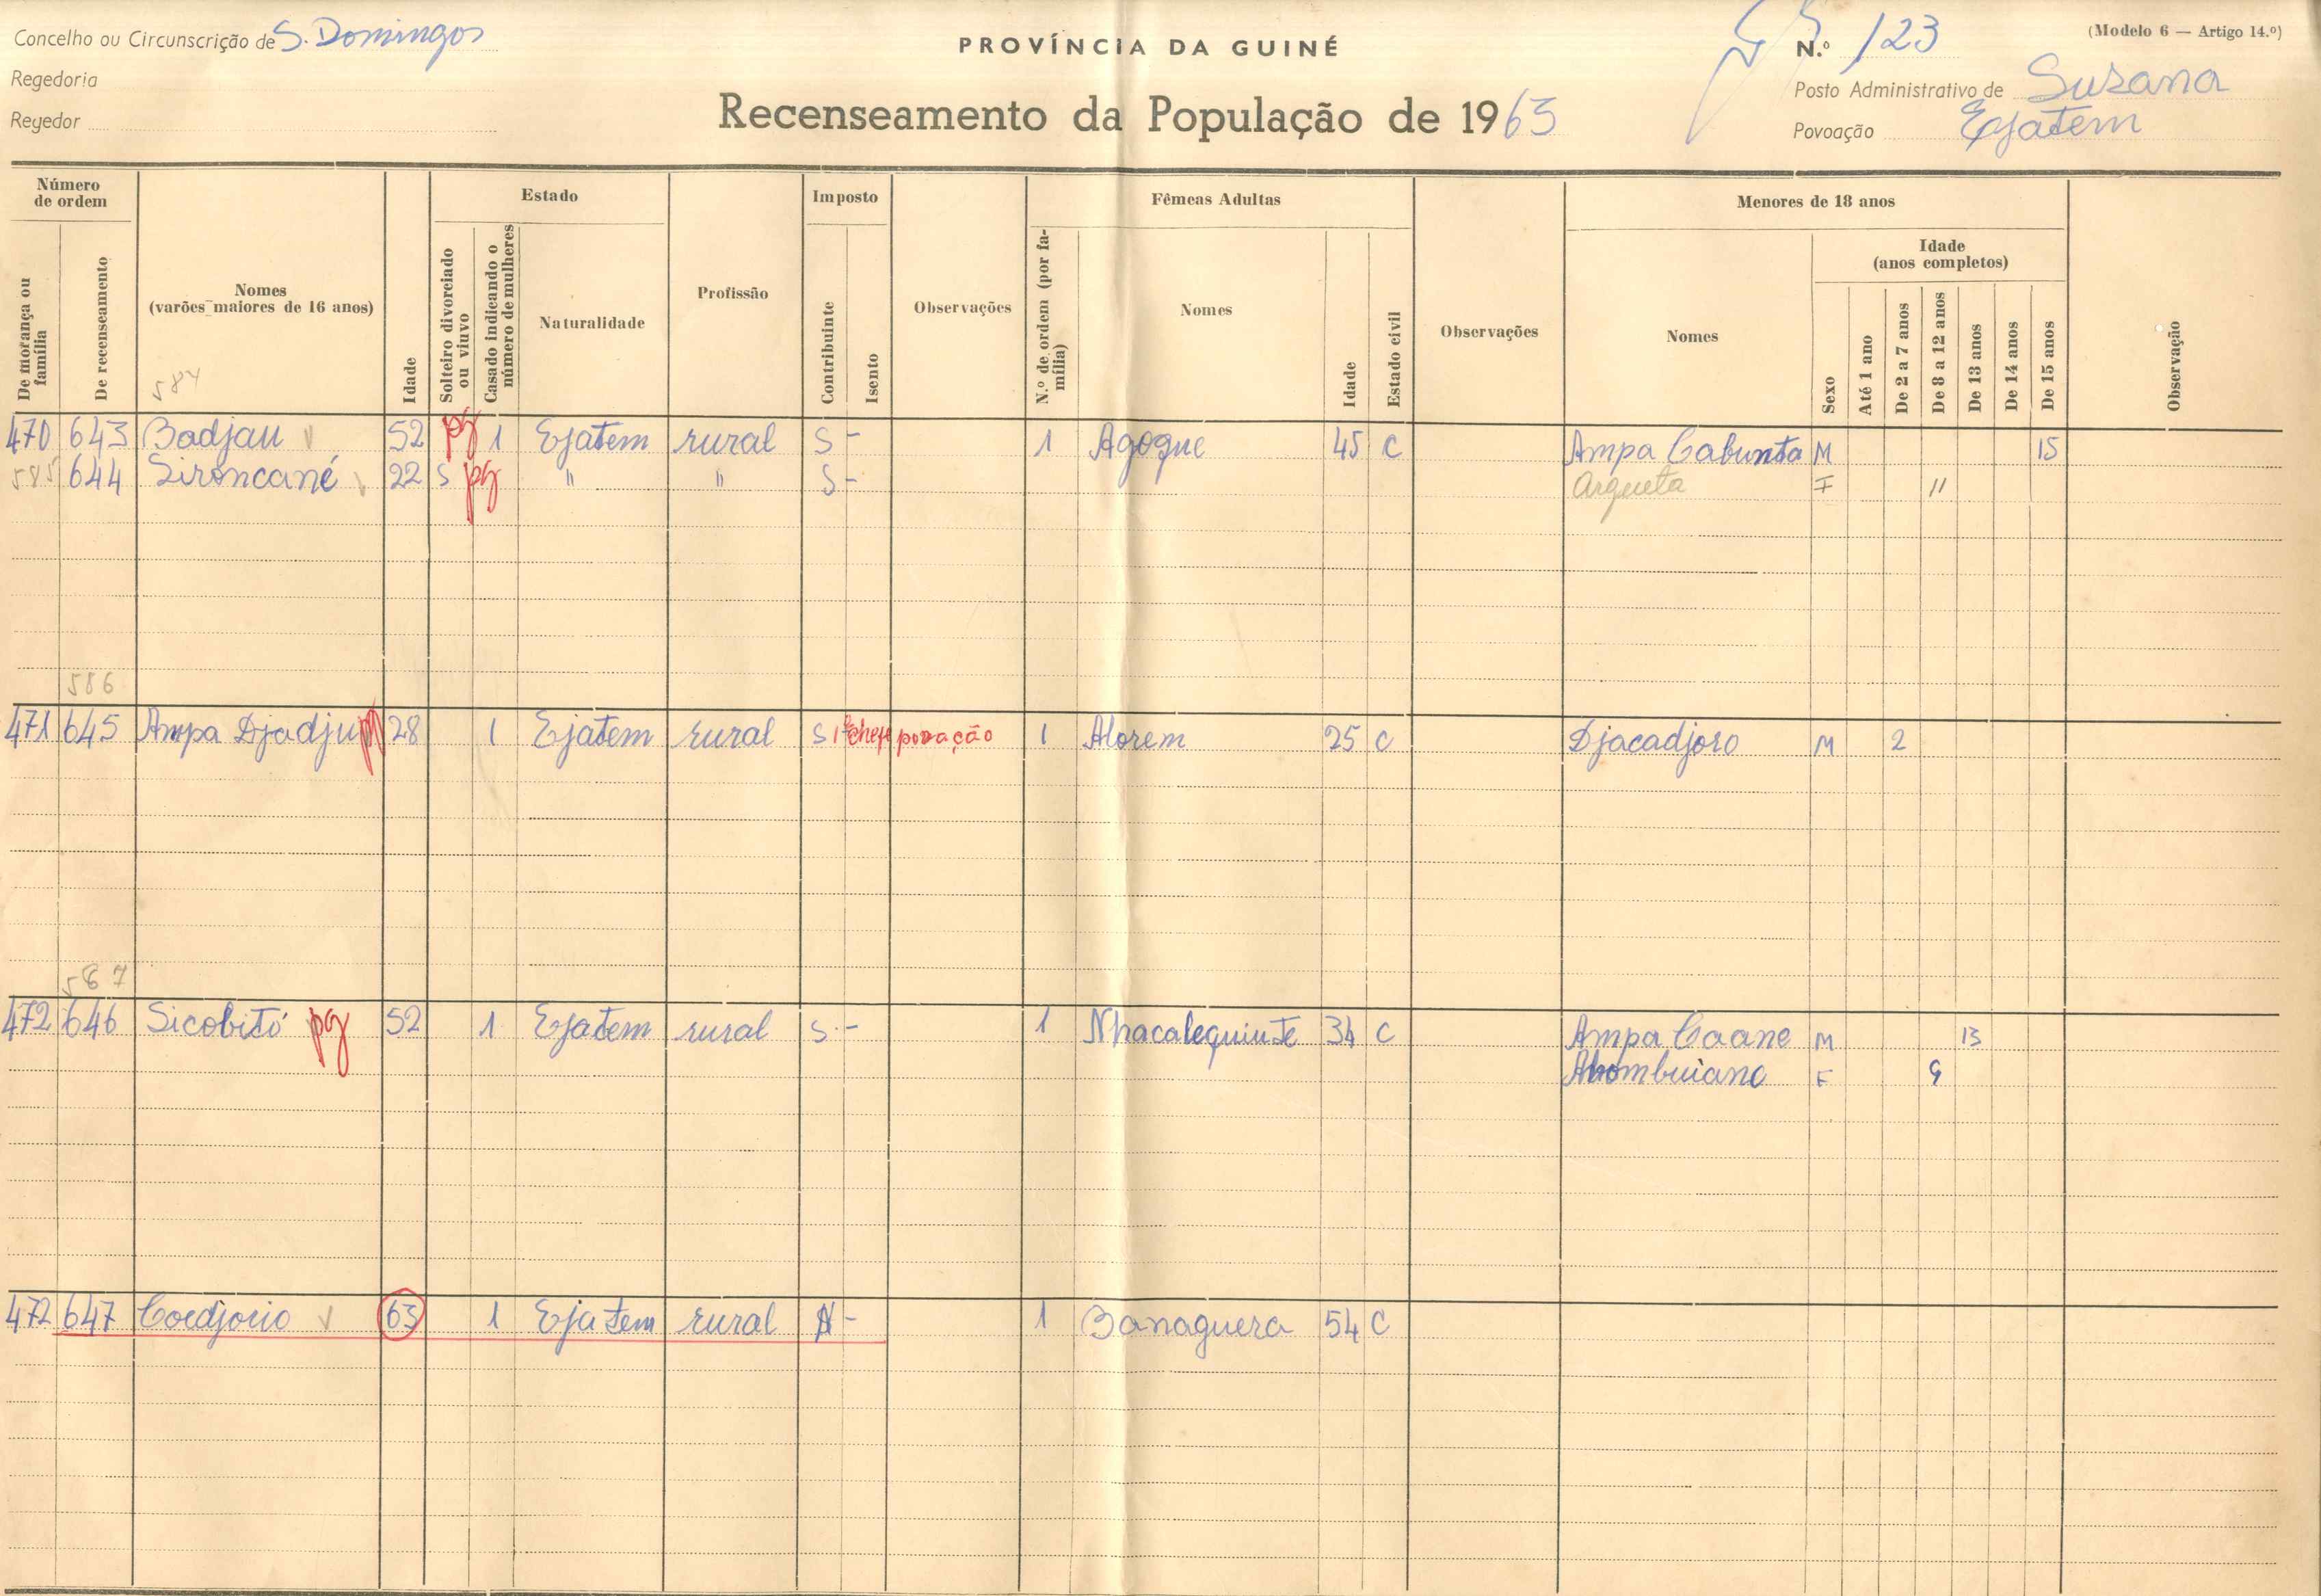 Concelho ou Circunscrição de S. Domingos
Regedoria
Regedor
PROVÍNCIA DA GUINÉ
Recenseamento da População de 1963
N.º 123
(Modelo 6 — Artigo 14.º)
Posto Administrativo de Suzana
Povoação Ejatem
Número de ordem
De morança ou família
De recenseamento
Nomes
(varões maiores de 16 anos)
584
Idade
Estado
Solteiro divorciado ou viuvo
Casado indicando o número de mulheres
Naturalidade
Profissão
Imposto
Contribuinte
Isento
Observações
Fêmeas Adultas
N.º de ordem (por família)
Nomes
Idade
Estado civil
Observações
Menores de 18 anos
Nomes
Sexo
Idade
(anos completos)
Até 1 ano
De 2 a 7 anos
De 8 a 12 anos
De 13 anos
De 14 anos
De 15 anos
Observação
470 643 Badjau 52 pg 1 Ejatem rural S - 1 Agogue 45 C Ampa Cabunta M 15
585 644 Sironcané 22 S pg " " S - Argueta F 11
586
471 645 Ampa Djadju pg 28 1 Ejatem rural S 1 chefe povoação 1 Alorem 25 C Djacadjoro M 2
587
472 646 Sicobitó pg 52 1 Ejatem rural S - 1 Nhacalequinte 34 C Ampa Caane M 13
Abombuiano F 9
472 647 Coedjorio 63 1 Ejatem rural - 1 Banaguera 54 C